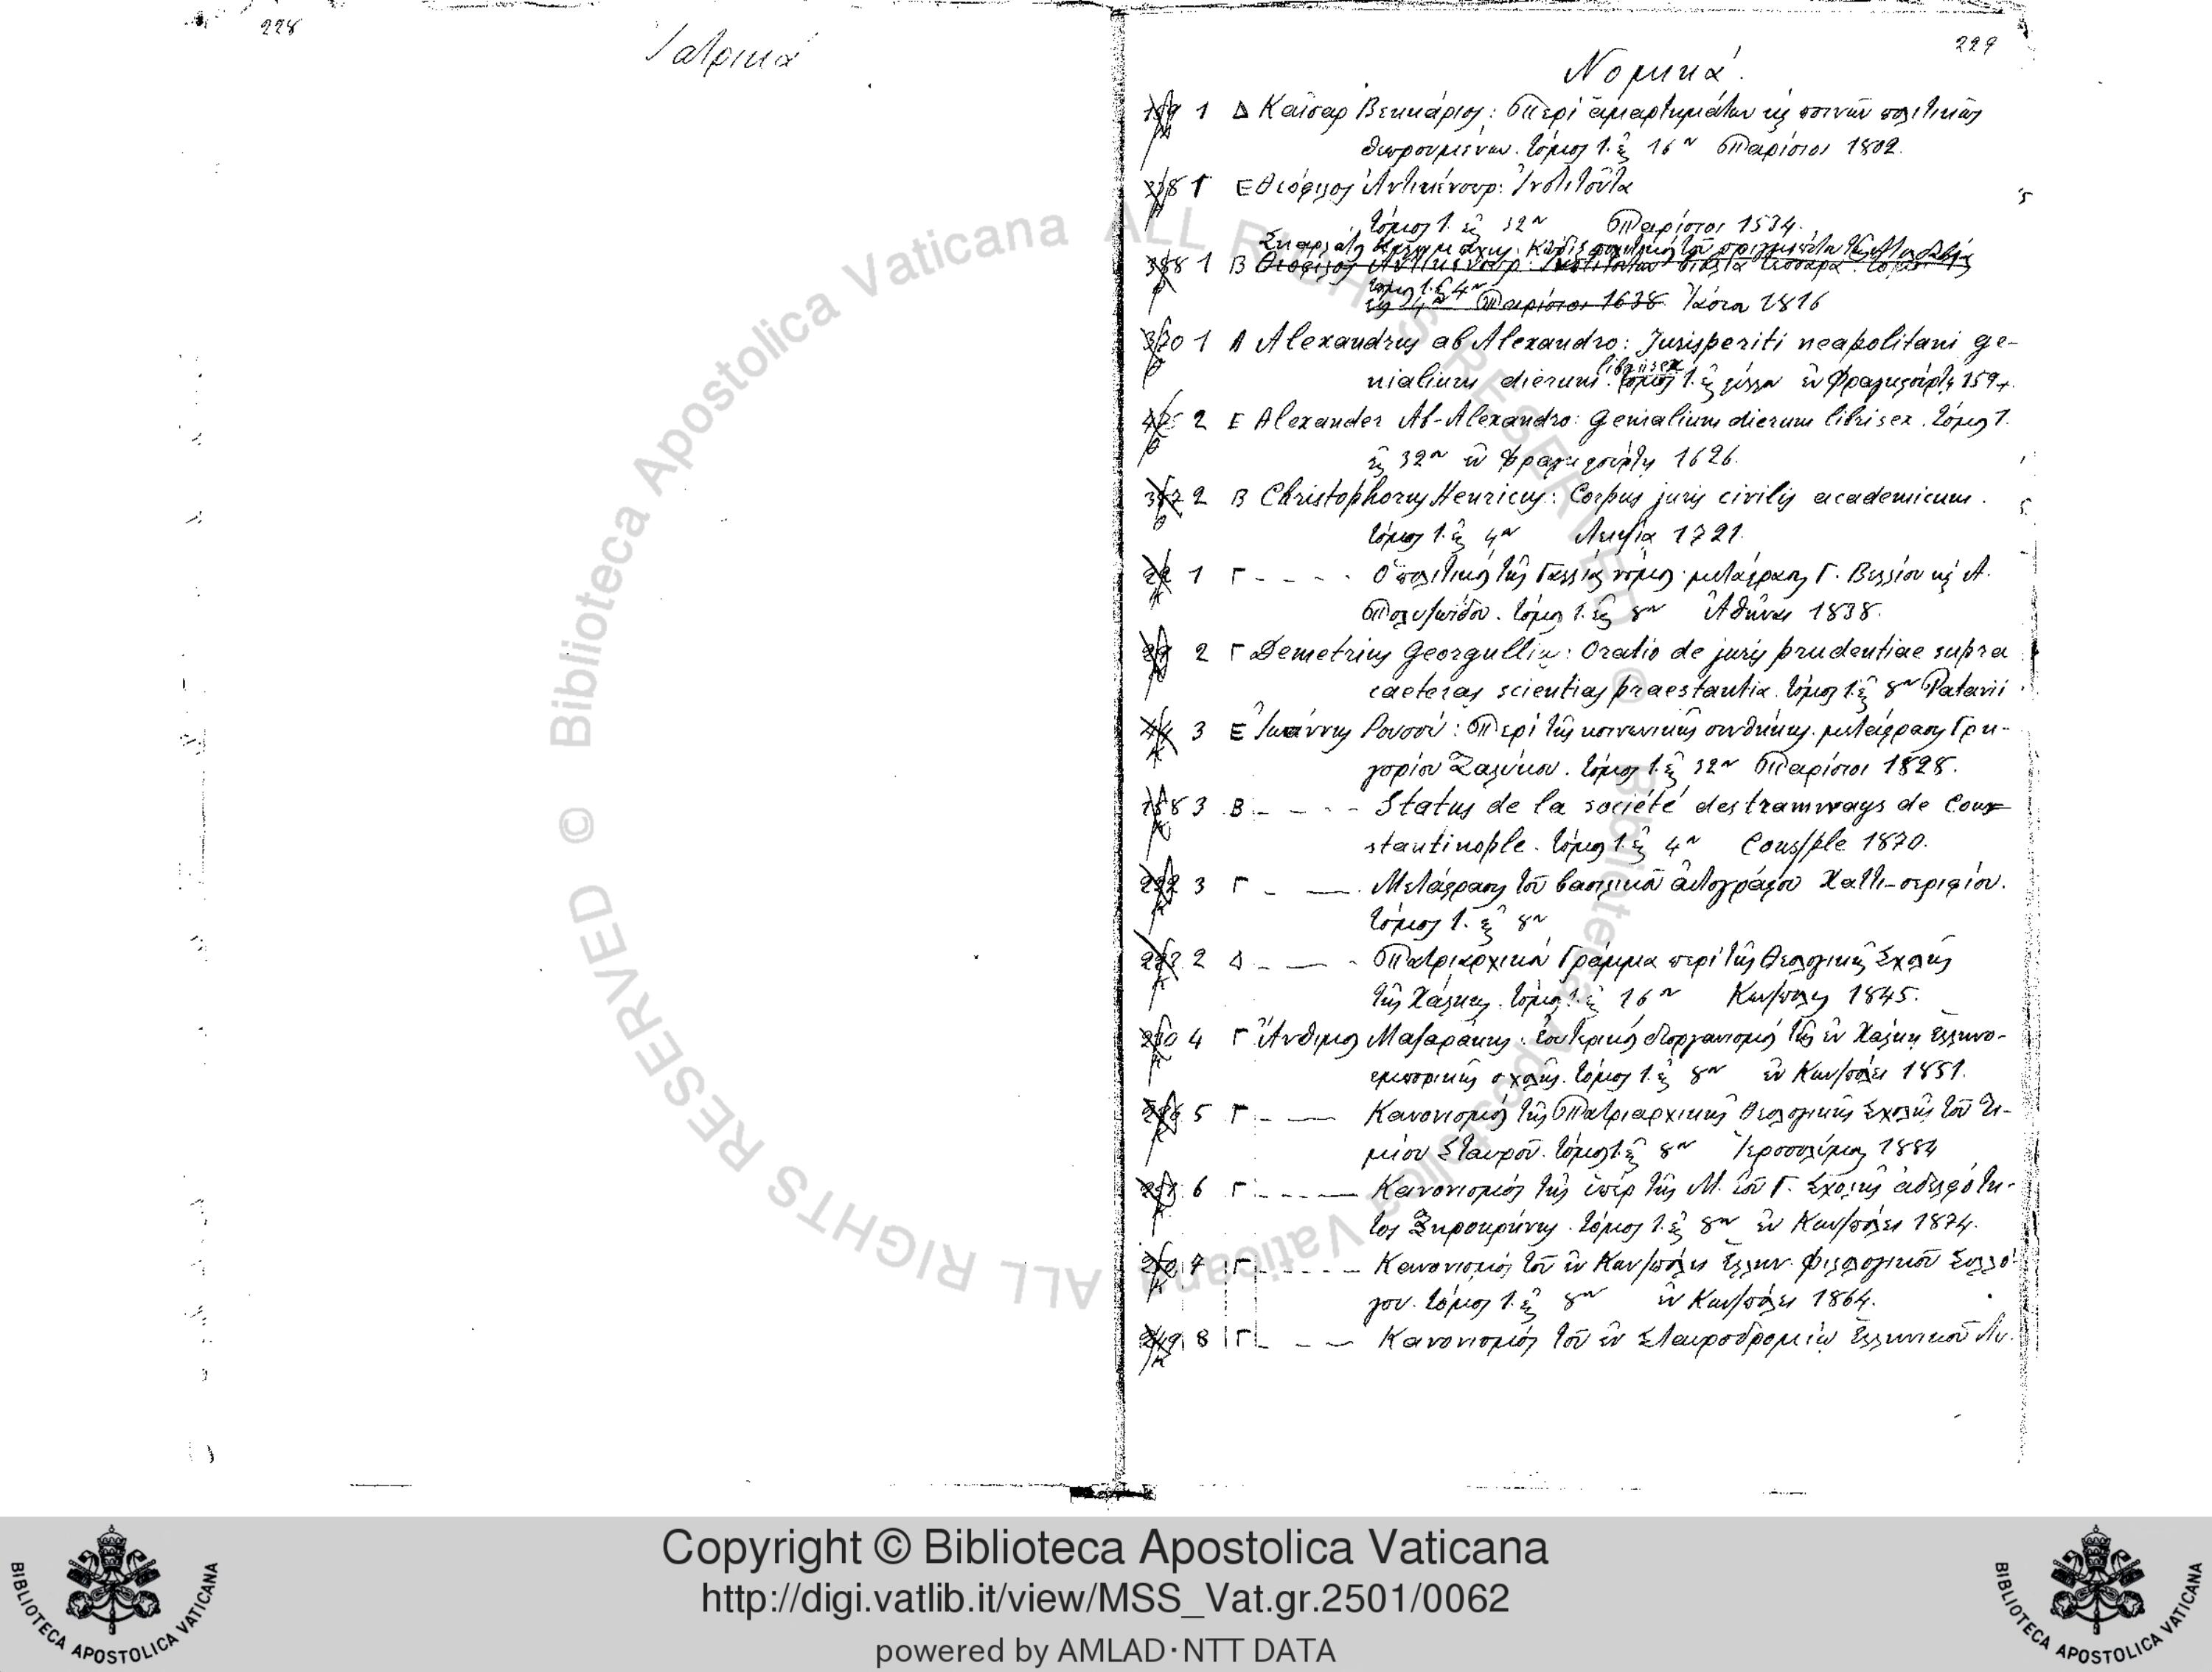 228
Ἰατρικά
229
Νομικά.
1 Δ Καῖσαρ Βεκκάριος: Περὶ ἁμαρτημάτων κ ποινῶν πολιτικῶς
θεωρουμένων. τόμος 1. εἰς 16ον Παρίσιοι 1802.
1 Ε Θεόφιλος Ἀντικένσωρ: Ἰνστιτοῦτα
τόμος 1. εἰς 32ον Παρίσιοι 1534.
1 Β Θεόφιλος Ἀντικένσωρ:
τόμος 1. εἰς 4ον
εἰς 4ον Παρίσιοι 1638 Ἰάσιον 1816
1 Α Alexandrus ab Alexandro: Jurisperiti neapolitani ge-
libri sex
nialium dierum. τόμος 1. εἰς φύλλον ἐν Φραγκφούρτῃ
2 Ε Alexander Ab-Alexandro: Genialium dierum libri sex. τόμος 1.
εἰς 32ον ἐν Φραγκφούρτῃ 1626.
2 Β Christophorus Henricus: Corpus juris civilis academicum.
τόμος 1. εἰς 4ον Λειψία 1721.
1 Γ - - - - Ὁ πολιτικὸς τῆς Γαλλίας νόμος. μετάφρασις Γ. Βελλίου κ Α.
Πολυζωίδου. τόμος 1. εἰς 8ον Ἀθῆναι 1838.
2 Γ Demetrius Georgullia: Oratio de juris prudentiae supra
caeteras scientias praestantia. τόμος 1. εἰς 8ον Patavii
3 Ε Ἰωάννης Ρουσσώ: Περὶ τῆς κοινωνικῆς συνθήκης. μετάφρασις Γρη-
γορίου Ζαλύκου. τόμος 1. εἰς 32ον Παρίσιοι 1828.
3 Β - - - - Status de la société des tramways de Con-
stantinople. τόμος 1. εἰς 4ον Cons/ple 1870.
3 Γ - —. Μετάφρασις τοῦ βασιλικοῦ αὐτογράφου Χαττι-σεριφίου.
τόμος 1. εἰς 8ον
2 Δ - — - Πατριαρχικὸν Γράμμα περὶ τῆς Θεολογικῆς Σχολῆς
τῆς Χάλκης. τόμος 1. εἰς 16ον Κων/πολις 1845.
4 Γ Ἄνθιμος Μαζαράκης: ἐσωτερικὸς διοργανισμὸς τῆς ἐν Χάλκῃ ἑλληνο-
εμπορικῆς σχολῆς. τόμος 1. εἰς 8ον ἐν Κων/πόλει 1851.
5 Γ - — Κανονισμὸς τῆς Πατριαρχικῆς Θεολογικῆς Σχολῆς τοῦ Τι-
μίου Σταυροῦ. τόμος 1. εἰς 8ον Ἱεροσόλυμα 1884
6 Γ - - - — Κανονισμὸς τῆς ὑπὲρ τῆς Μ. τοῦ Γ. Σχολῆς ἀδελφότη-
τος Ξηροκρήνης. τόμος 1. εἰς 8ον ἐν Κων/πόλει 1874.
7 Γ - - - - Κανονισμὸς τοῦ ἐν Κων/πόλει Ἑλλην. Φιλολογικοῦ Συλλό-
γου. τόμος 1. εἰς 8ον ἐν Κων/πόλει 1864.
8 Γ - - — Κανονισμὸς τοῦ ἐν Σταυροδρομίῳ Ἑλληνικοῦ Λυ.
© Biblioteca Apostolica Vaticana ALL RIGHTS RESERVED
Copyright © Biblioteca Apostolica Vaticana
http://digi.vatlib.it/view/MSS_Vat.gr.2501/0062
powered by AMLAD·NTT DATA
BIBLIOTECA APOSTOLICA VATICANA
BIBLIOTECA APOSTOLICA VATICANA